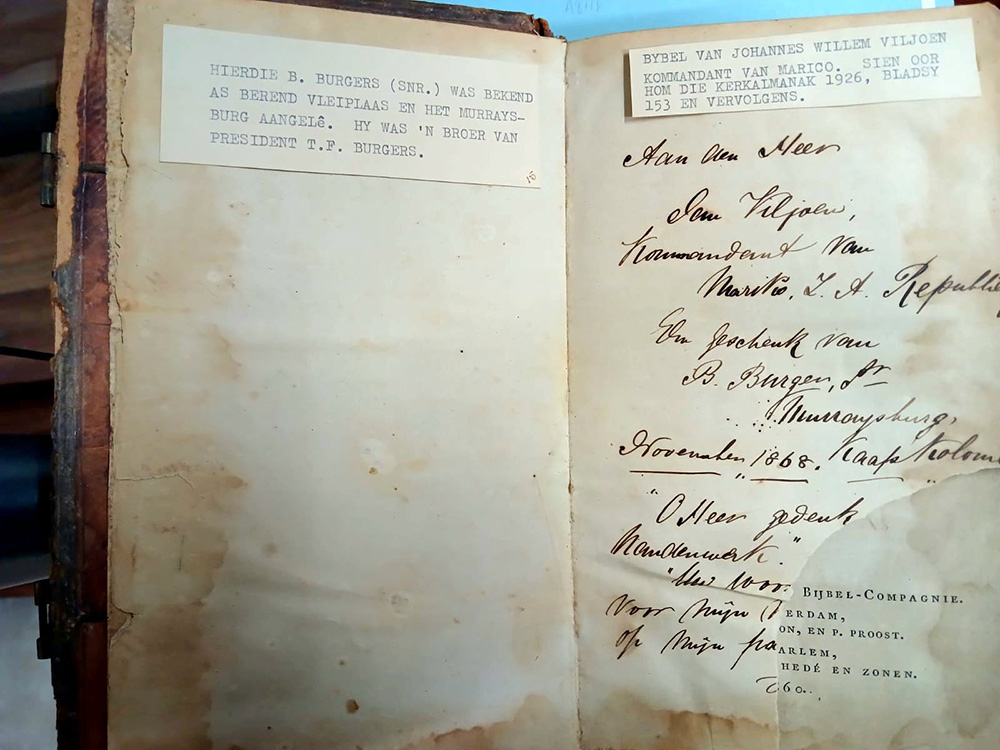 HIERDIE B. BURGERS (SNR.) WAS BEKEND
AS BEREND VLEIPLAAS EN HET MURRAYS-
BURG AANGELê. HY WAS 'N BROER VAN
PRESIDENT T.F. BURGERS.
15
BYBEL VAN JOHANNES WILLEM VILJOEN
KOMMANDANT VAN MARICO. SIEN OOR
HOM DIE KERKALMANAK 1926, BLADSY
153 EN VERVOLGENS.
Aan den Heer
Jan Viljoen,
Kommandant van
Mariko, Z. A. Republie
Een geschenk van
B. Burgers, Sr
Murraysburg,
November 1868. Kaaps Kolonie
"O Heer gedenk
handenwerk."
"Uw woor
voor mijn
op mijn pa
BIJBEL-COMPAGNIE.
ERDAM,
ON, EN P. PROOST.
AARLEM,
HEDÉ EN ZONEN.
60.